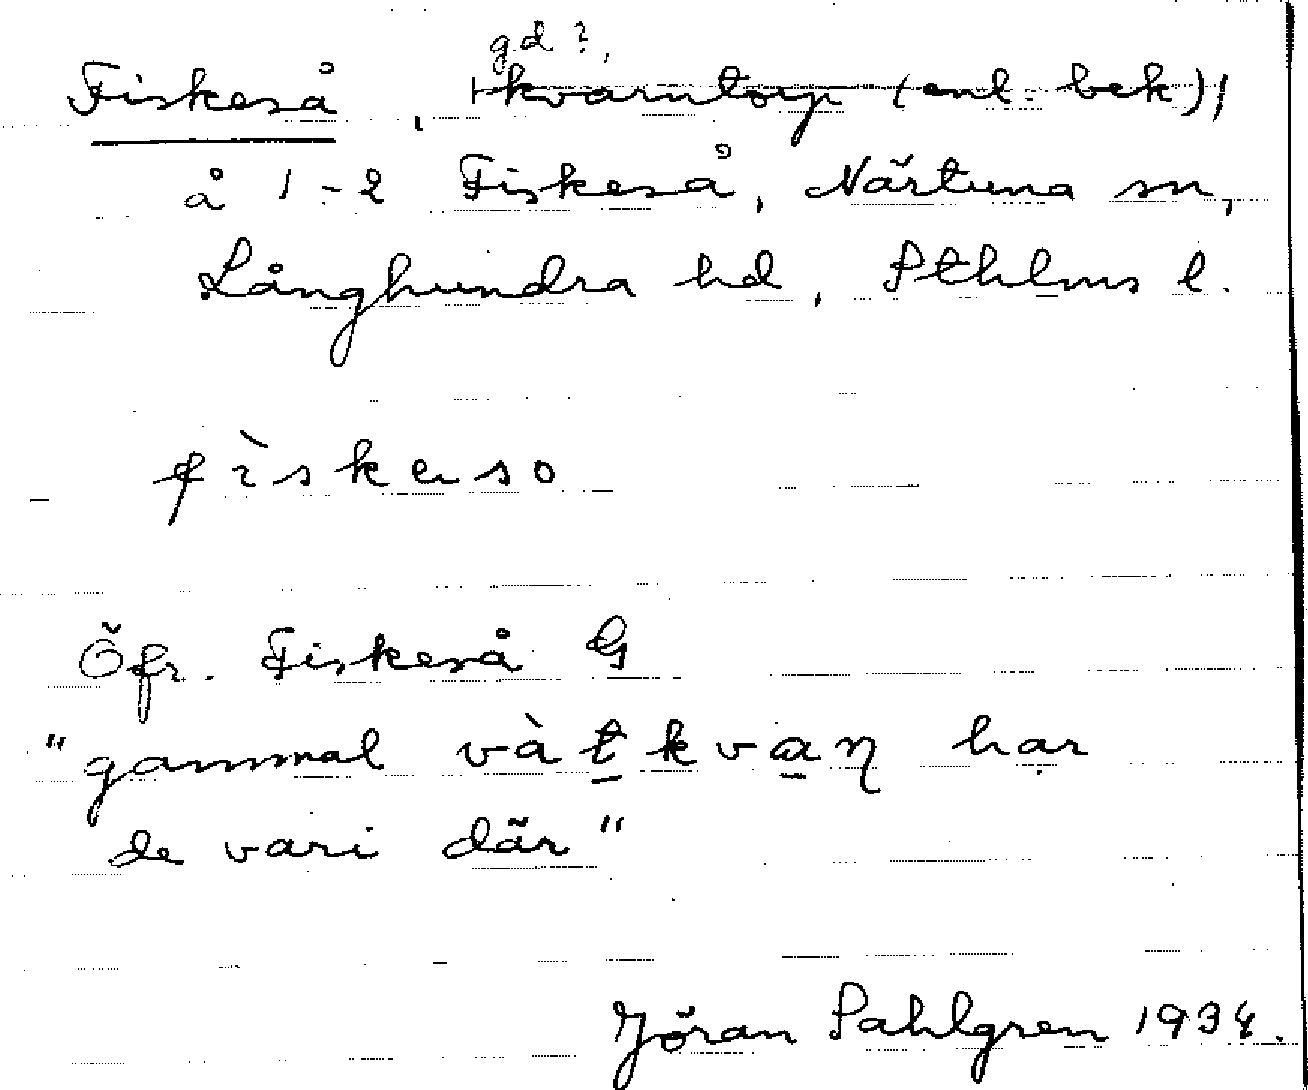 gd?,
Fiskeså, kvarntorp (enl. bek),
å 1-2 Fiskeså, Närtuna sn,
Långhundra hd, Sthlms l.
fìskeso
Öfr. Fiskeså G
"gammal vàtkvaɳ har
de vari där"
Jöran Sahlgren 1934.